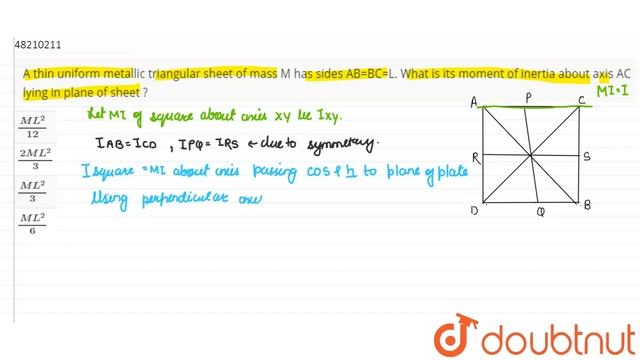 48210211
A thin uniform metallic triangular sheet of mass M has sides AB=BC=L. What is its moment of inertia about axis AC
lying in plane of sheet ?
ML²/12
2ML²/3
ML²/3
ML²/6
Let MI of square about axis xy be Ixy.
IAB = ICD , IPQ = IRS ← due to symmetry.
I square = MI about axis passing COS & ⊥ to plane of plate
Using perpendicular axe
MI=I
A P C
R S
D Q B
doubtnut